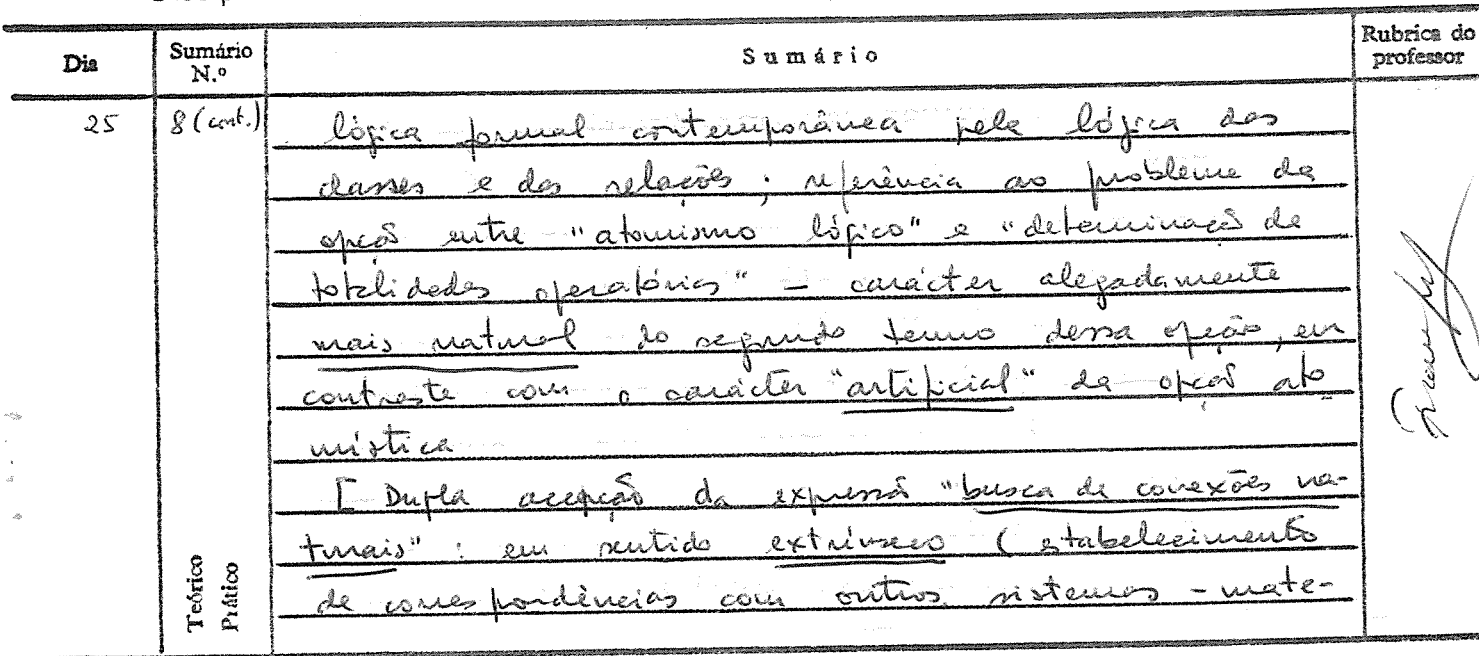 Dia Sumário N.º Sumário Rubrica do professor
25 8 (cont.) lógica formal contemporânea pela lógica das
classes e das relações; referência ao problema da
opção entre "atomismo lógico" e "determinação de
totalidades operatórias" – carácter alegadamente
mais natural do segundo termo dessa opção, em
contraste com o carácter "artificial" da opção ato
mística
[ Dupla acepção da expressão "busca de conexões na-
turais": em sentido extrínseco (estabelecimento
de correspondências com outros sistemas – mate-
Teórico
Prático